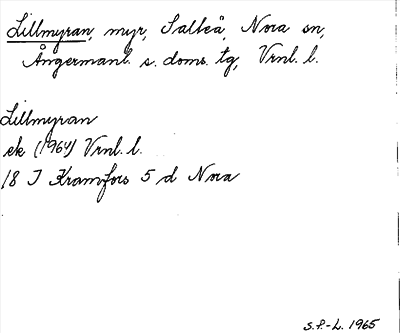 Lillmyran, myr, Salteå, Nora sn,
Ångermanl. s. doms. tg, Vrnl. l.
Lillmyran
ek (1964) Vrnl. l.
18 I Kramfors 5 d Nora
S.F.-L. 1965